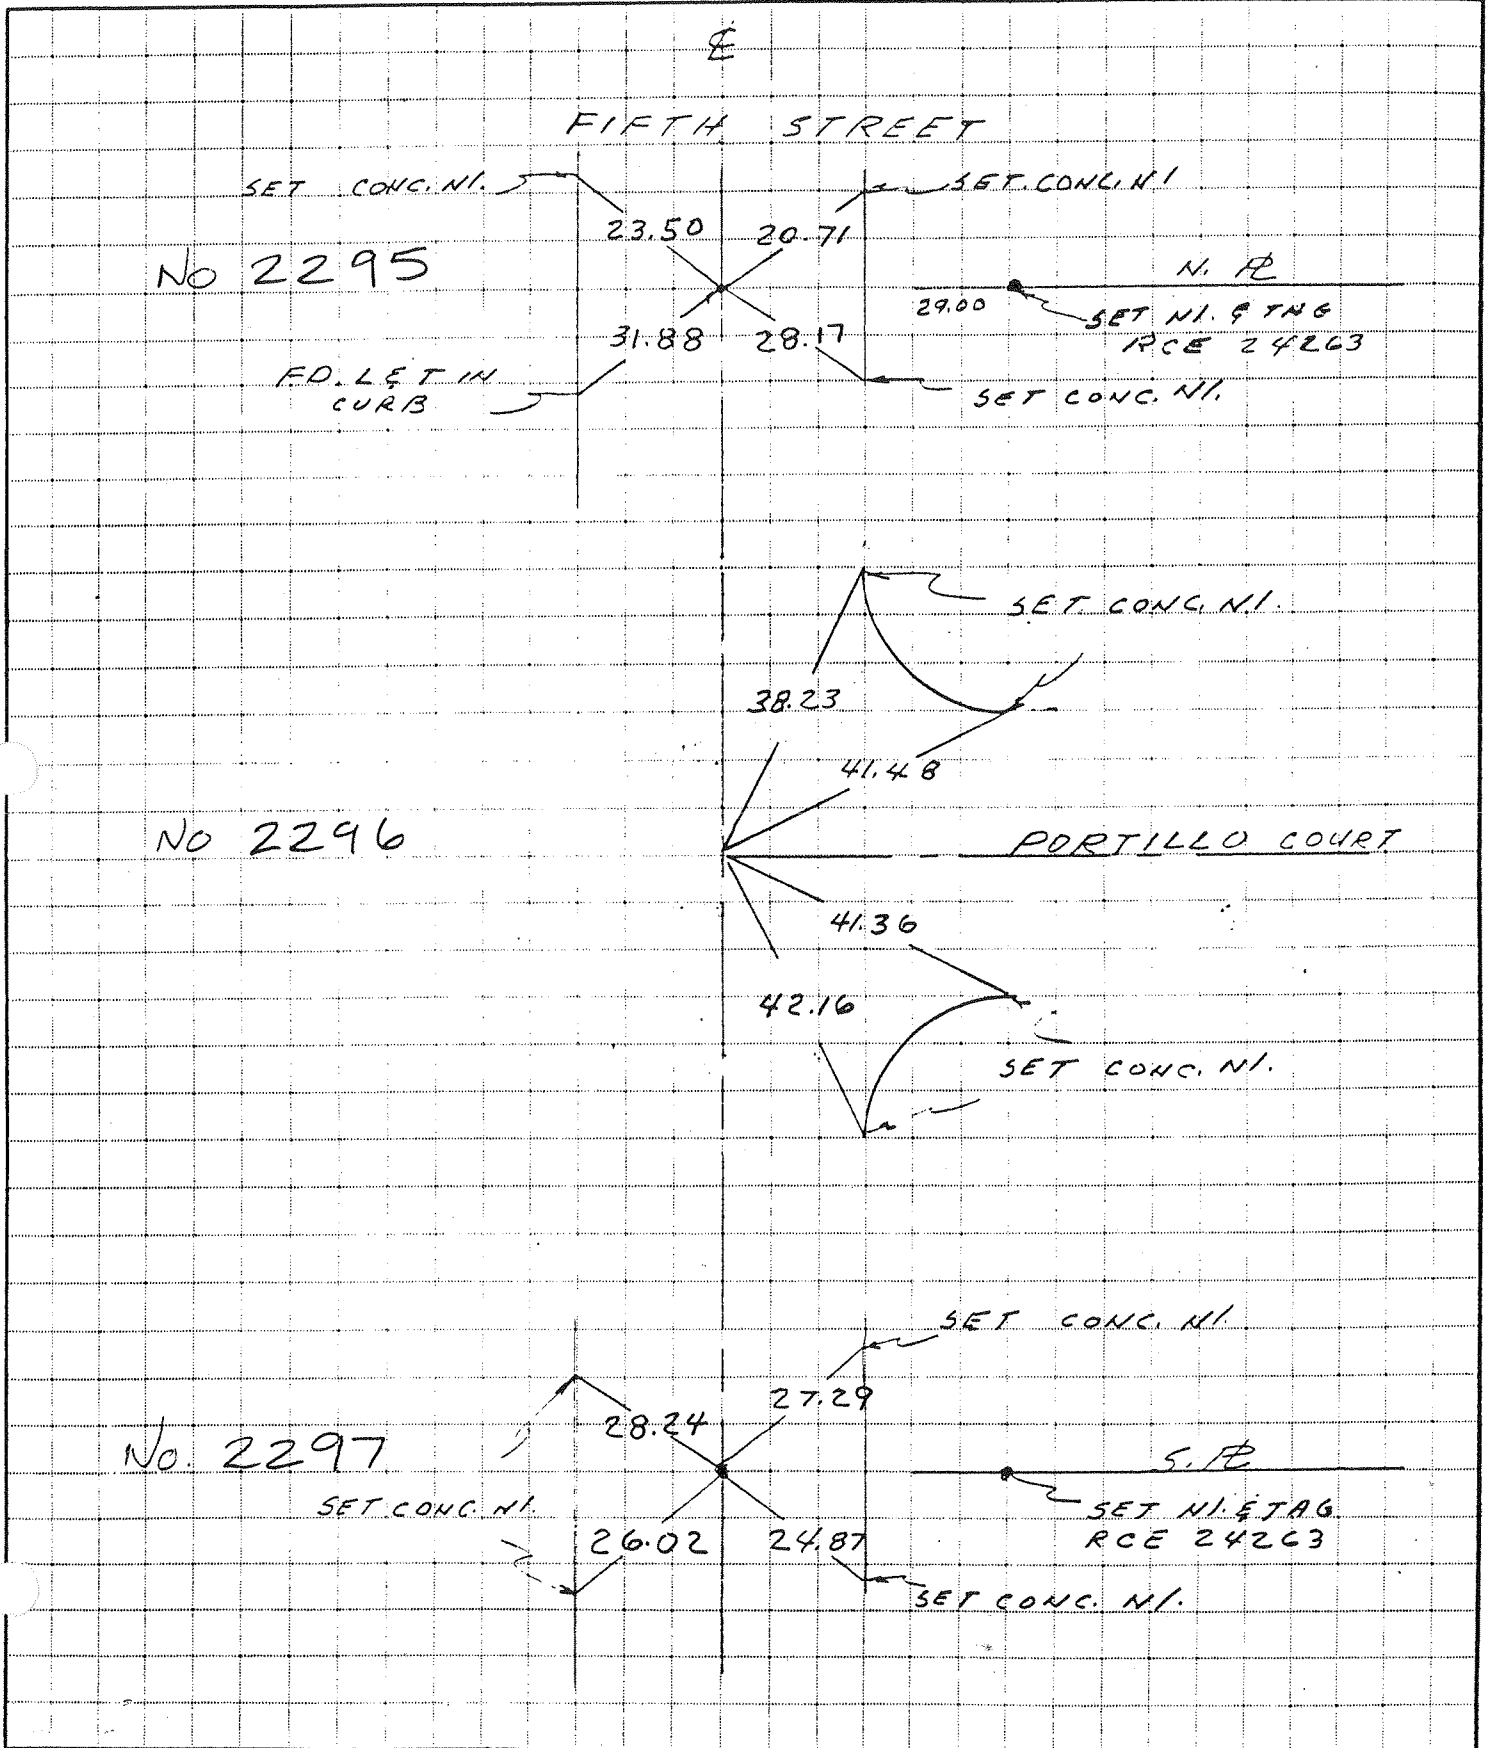 ℄
FIFTH STREET
SET CONC. N/.
SET. CONC. N/
23.50
20.71
No 2295
N. ⅊
29.00
SET N/. & TAG
RCE 24263
31.88
28.17
FD. L & T IN
CURB
SET CONC. N/.
SET CONC. N/.
38.23
41.48
No 2296
PORTILLO COURT
41.36
42.16
SET CONC. N/.
SET CONC. N/.
27.29
28.24
No. 2297
S. ⅊
SET CONC. N/.
SET N/. & TAG
RCE 24263
26.02
24.87
SET CONC. N/.